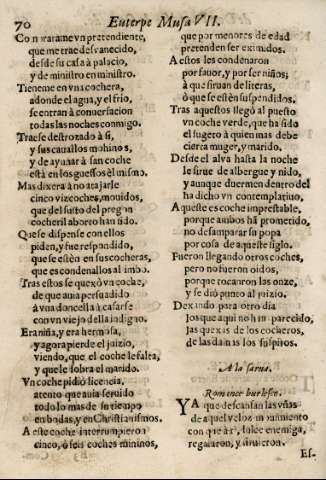 70 Euterpe Musa VII.
Comprarame vn pretendiente,
que me trae desvanecido,
desde su casa à palacio,
y de ministro en ministro.
Tieneme en vna cochera,
adonde el agua, y el frio,
se entran à conuersacion
todas las noches conmigo.
Traese destrozado à si,
y sus cauallos mohinos,
y de ayunar à san coche
està en los guessos èl mismo.
Mas dixera à no atajarle
cinco vizcoches, mouidos,
que del susto del pregon
cocheril aborto han sido.
Quese dispense con ellos
piden, y fue respondido,
que se estèn en sus cocheras,
que es condenallos al limbo.
Tras estos se quexò vn coche,
de que auia persuadido
à vna doncella à casarse
con vn viejo de la indigno.
Era niña, y era hermosa,
y agora pierde el juizio,
viendo, que el coche le falta,
y que le sobra el marido.
Vn coche pidiò licencia,
atento que auia seruido
todo lo mas de su tiempo
en bodas, y en Christianismos.
A este coche interrumpieron
cinco, ò seis coches mininos,
que por menores de edad
pretenden ser eximidos.
A estos les condenaron
por fauor, y por ser niños;
à que siruan de literas,
ò que se estèn suspendidos.
Tras aquestos llegò al puesto
vn coche verde, que ha sido
el sugeto à quien mas debe
cierta muger, y marido.
Desde el alva hasta la noche
le sirue de albergue y nido,
y aunque duermen dentro del
ha dicho vn contemplatiuo,
Aqueste es coche imprestable,
porque ambos hà prometido,
no desamparar su popa
por cosa de aqueste siglo.
Fueron llegando otros coches,
pero no fueron oidos,
porque tocaron las onze,
y se diò punto al juizio.
Dexando para otro dia
los que aqui no han parecido,
las quexas de los cocheros,
de las damas los suspiros.
A la sarna.
Romance burlesco.
YA que descansan las vñas
de aquel veloz mouimiento
con que à ti, dulce enemiga,
regalaron, y siruieron.
Es-